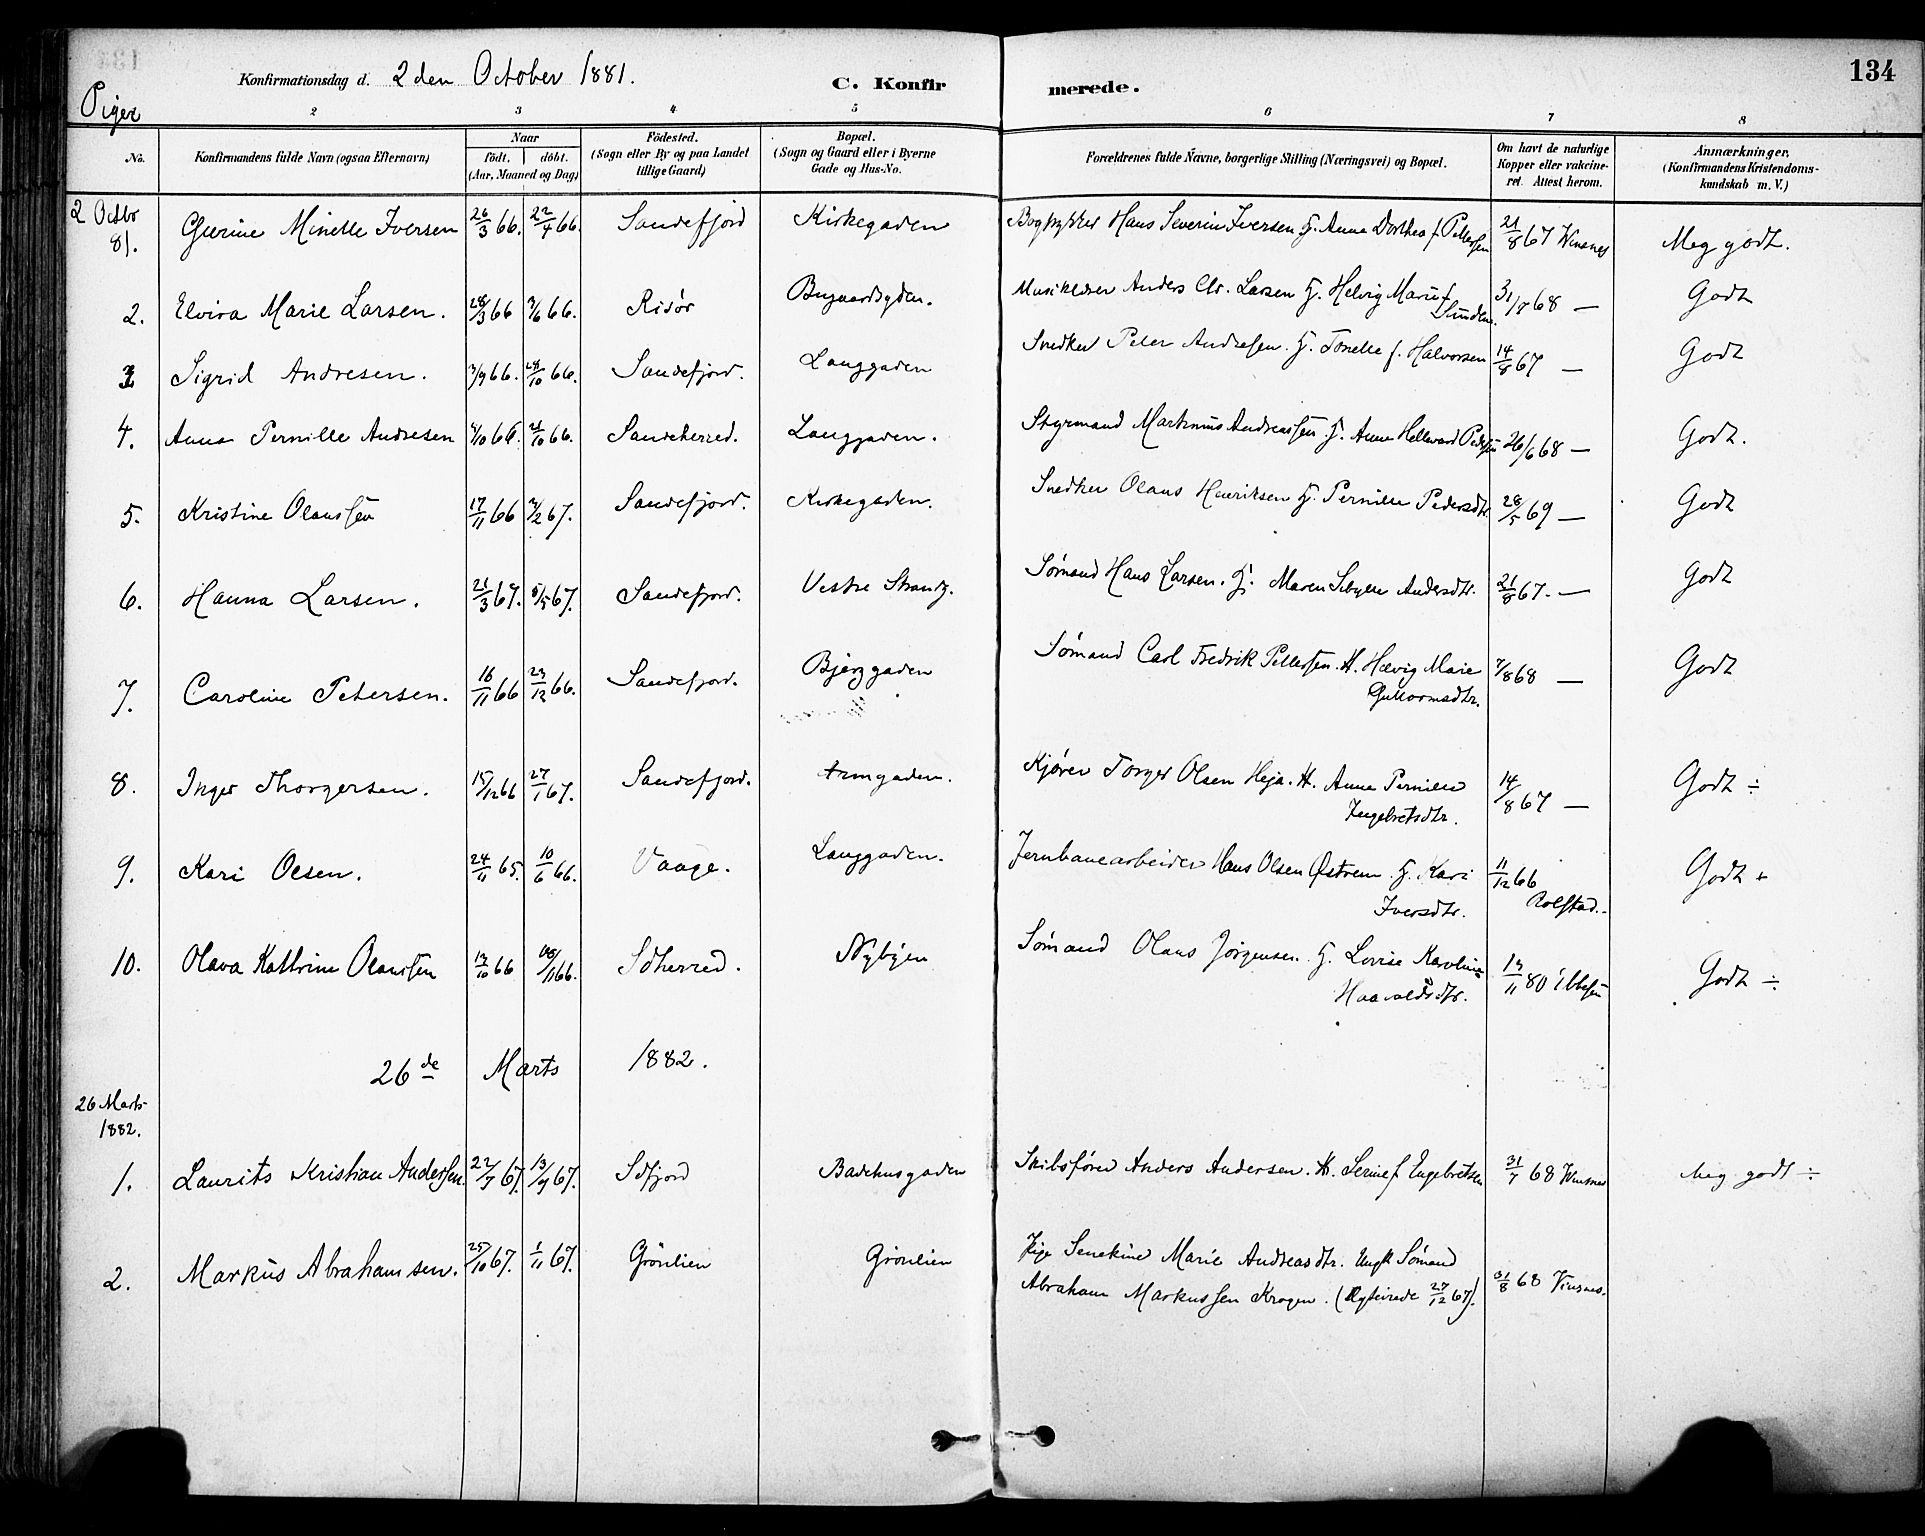 134
Konfirmationsdag d. 2 den October 1881. C. Konfirmerede.
Piger
2 3 4 5 6 7 8
No. Konfirmandens fulde Navn (ogsaa Efternavn) Naar født. døbt. (Aar, Maaned og Dag) Fødested. (Sogn eller By og paa Landet tillige Gaard) Bopæl. (Sogn og Gaard eller i Byerne Gade og Hus-No. Forældrenes fulde Navne, borgerlige Stilling (Næringsvei) og Bopæl. Om havt de naturlige Kopper eller vakcineret. Attest herom. Anmærkninger. (Konfirmandens Kristendomskundskab m. V.)
2 Octbr 81. Minelle Iversen 26/3 66. 22/4 66. Sandefjord Kirkegaden Hans Severin Iversen H. Anna Dorthea f. Pettersen 21/8 67 Winsnes Meg godt.
2. Elvira Marie Larsen. 28/3 66 3/6 66. Risør Anders Chr. Larsen H. Helvig Marie f. 68 — Godt
3 Sigrid Andresen. 3/9 66. 28/10 66. Sandefjord. Langgaden Snedker Peter Andresen. H. Tonelle f. Halvorsen 14/8 67 — Godt
4. Anna Pernille Andresen 66. 21/10 66. Sandeherred. Langgaden. Styrmand Martinius Andreassen. H. Anne 26/6 68 — Godt.
5. Kristine Olaussen 17/11 66 3/2 67. Sandefjord. Kirkegaden. Snedker Olaus Henriksen H. Pernille Pedersdtr. 28/5 69 — Godt
6. Hanna Larsen. 21/3 67. 5/5 67. Sandefjord. Vestre Strandg. Sømand Hans Larsen. H. Maren Sibylle Andersdtr. 21/8 67. — Godt
7. Caroline Petersen. 16/11 66 23/12 66. Sandefjord. Bjerggaden Sømand Carl Fredrik Pettersen. H. Helvig Marie Guttormsdtr. 7/8 68 — Godt
8. Inger Thorgersen. 15/12 66 27/1 67. Sandefjord. Kjører Torger Olsen Heja. H. Anne Pernille Ingebretsdtr. 14/8 67 — Godt ÷
9. Kari Olsen. 24/11 65. 10/6 66. Vaage. Langgaden. Jernbanearbeider Hans Olsen Østrem. H. Kari Iversdtr. 11/12 66 Rolstad. Godt +
10. Olava Kathrine Olaussen 13/10 66 18/11 66. Sdherred. Nybyen Sømand Olaus Jørgensen. H. Lovise Karoline Haavaldsdtr. 13/11 80 Godt ÷
26de Marts 1882.
26 Marts 1882.
1. Laurits Kristian Andersen. 22/7 67. 13/9 67. Sdfjord Badehusgaden Skibsfører Anders Andersen. H. Serine f. Engebretsen 31/7 68 Winsnes Meg godt ÷
2. Markus Abrahamsen. 25/10 67. 1/11 67. Grønlien Grønlien Pige Senekine Marie Andreasdtr. Ungk. Sømand
Abraham Markussen Krogen. ( 27/12 67). 31/8 68 Vinsnes.